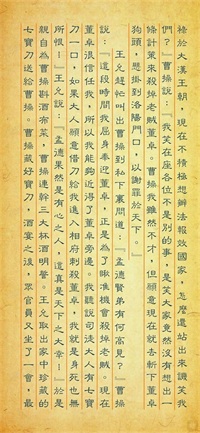 祿於大漢王朝，現在不積極想辦法報效國家，怎麼還站出來譏笑我
們？』曹操說：『我笑在座各位不是別的事，是笑大家竟然沒有想出一
條計策來殺掉老賊董卓。曹操我雖然不才，但願意現在就去斬下董卓
狗頭，懸掛到洛陽門口，以謝罪於天下。』
王允趕忙叫出曹操到私下裏問道：『孟德賢弟有何高見？』曹操
說：『這段時間我屈身奉迎董卓，正是為了瞅准機會殺掉老賊。現在
董卓很信任我，所以我能夠近得了董卓旁邊。我聽說司徒大人有七寶
刀一口，如果大人願意借刀給我進入相府刺殺董卓，我就是身死也無
所恨！』王允說：『孟德果然是有心之人，這真是天下之大幸！』於是
親自為曹操斟酒布菜，曹操連幹三大杯酒明誓。王允取出家中珍藏的
七寶刀送給曹操。曹操藏好寶刀，酒宴之後，眾官員又坐了一會最